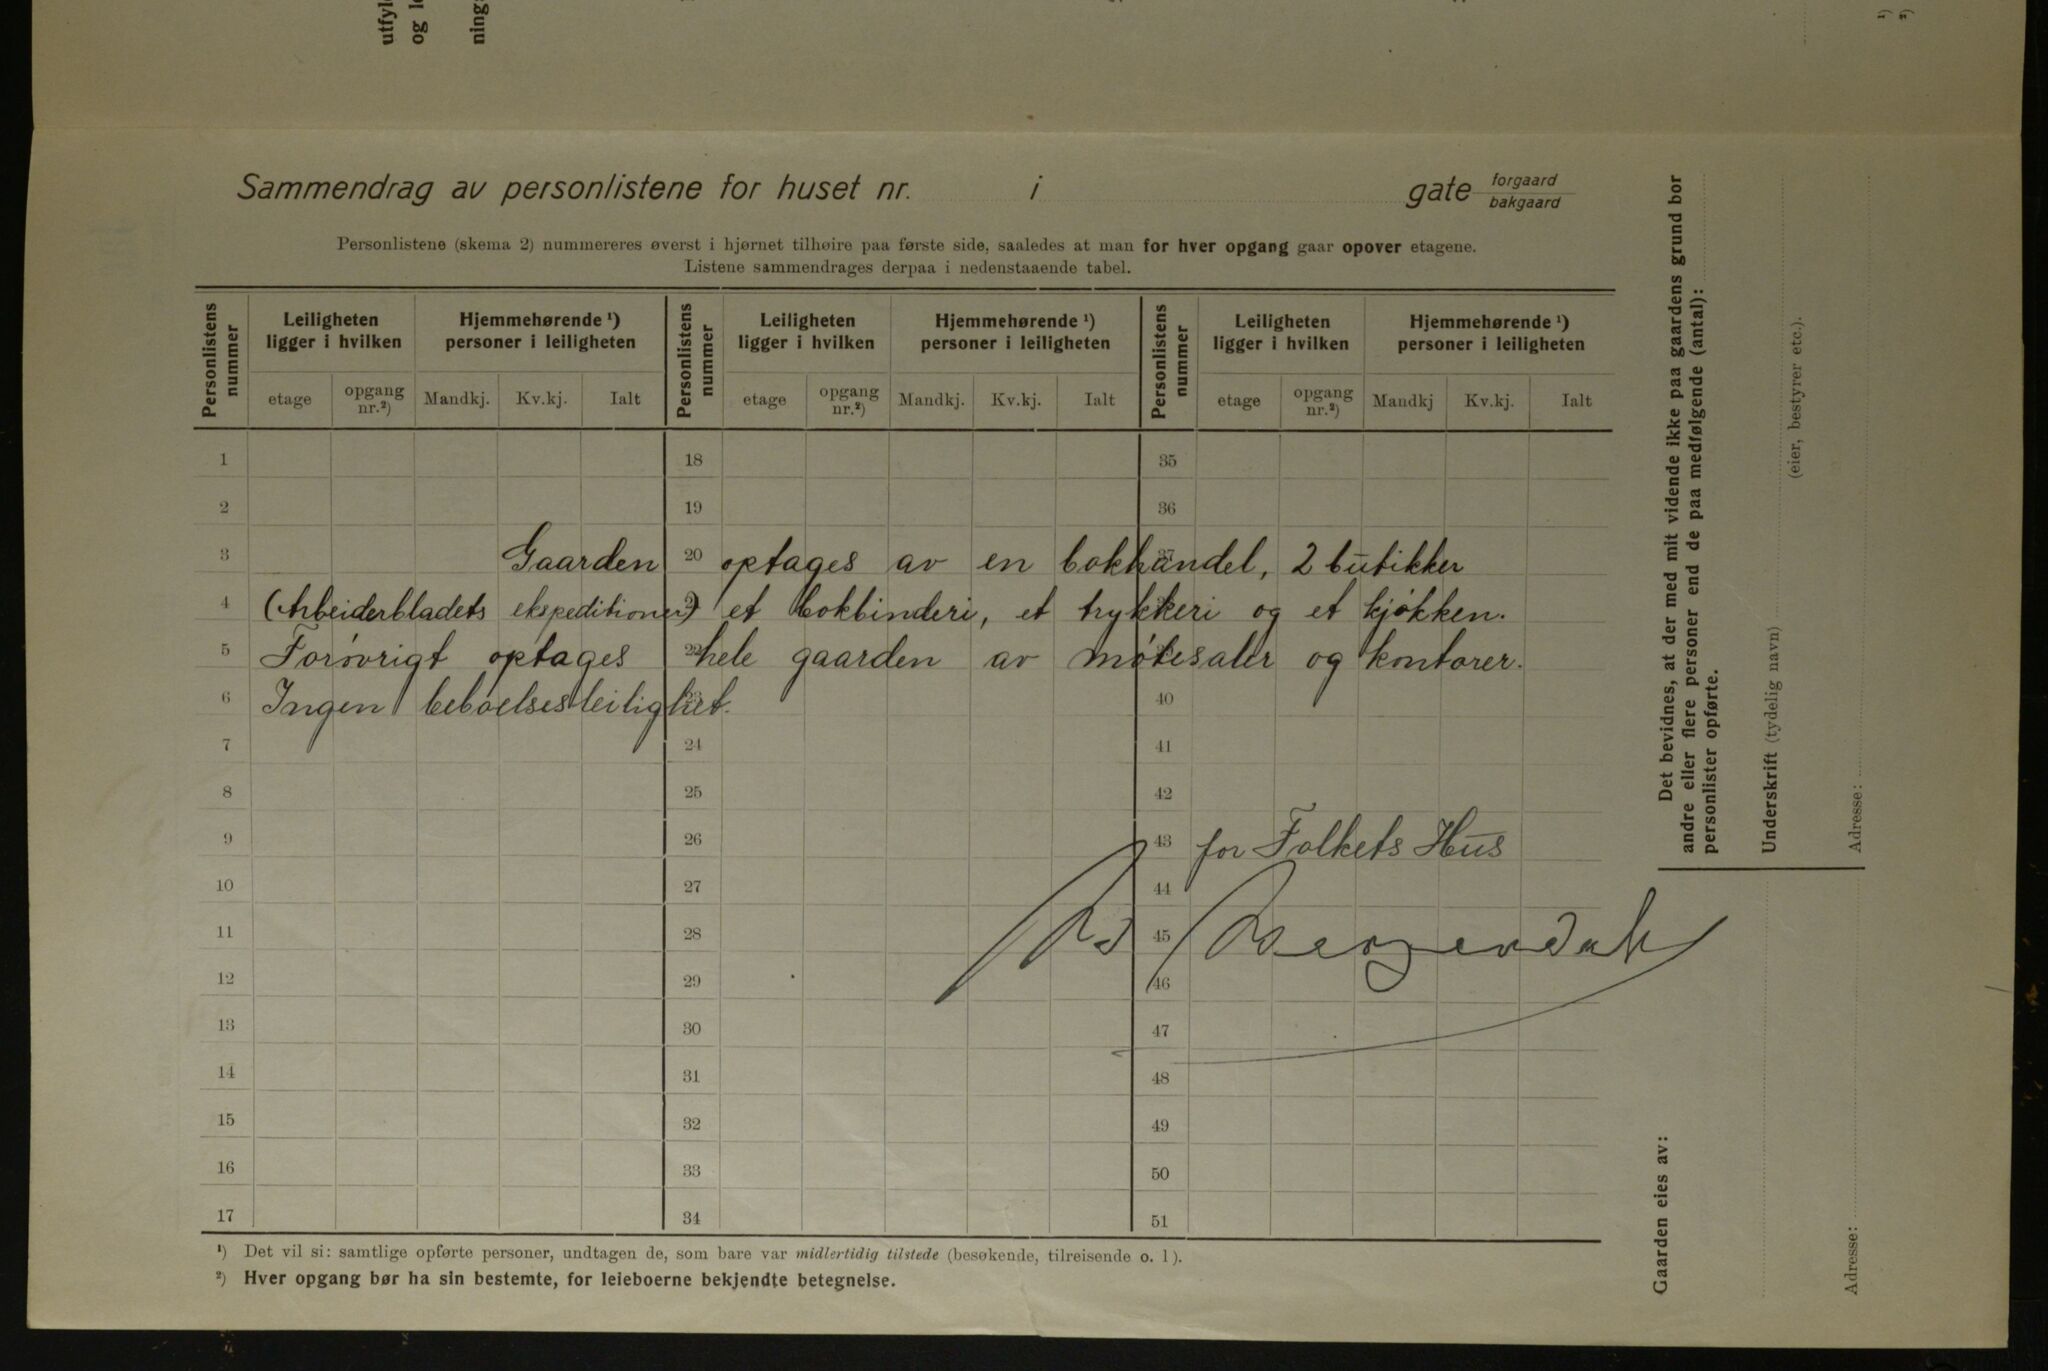 utfyl
og l
ning
¹)
²)
Sammendrag av personlistene for huset nr. i gate forgaard bakgaard
Personlistene (skema 2) nummereres øverst i hjørnet tilhøire paa første side, saaledes at man for hver opgang gaar opover etagene.
Listene sammendrages derpaa i nedenstaaende tabel.
Personlistens nummer
Leiligheten ligger i hvilken
Hjemmehørende ¹) personer i leiligheten
Personlistens nummer
Leiligheten ligger i hvilken
Hjemmehørende ¹) personer i leiligheten
Personlistens nummer
Leiligheten ligger i hvilken
Hjemmehørende ¹) personer i leiligheten
etage opgang nr.²) Mandkj. Kv.kj. Ialt etage opgang nr.²) Mandkj. Kv.kj. Ialt etage opgang nr.²) Mandkj Kv.kj. Ialt
1 18 35
2 19 36
3 Gaarden 20 optages av en bokhandel, 37 2 butikker
4 (Arbeiderbladets ekspeditioner) et bokbinderi, et trykkeri og et kjøkken.
5 Forøvrigt optages 22 hele gaarden av møtesaler og kontorer.
6 Ingen beboelsesleilighet. 23 40
7 24 41
8 25 42
9 26 43 for Folkets Hus
10 27 44
11 28 45
12 29 46
13 30 47
14 31 48
15 32 49
16 33 50
17 34 51
¹) Det vil si: samtlige opførte personer, undtagen de, som bare var midlertidig tilstede (besøkende, tilreisende o. l).
²) Hver opgang bør ha sin bestemte, for leieboerne bekjendte betegnelse.
Det bevidnes, at der med mit vidende ikke paa gaardens grund bor
andre eller flere personer end de paa medfølgende (antal):
personlister opførte.
Underskrift (tydelig navn)
(eier, bestyrer etc.).
Adresse:
Gaarden eies av:
Adresse: